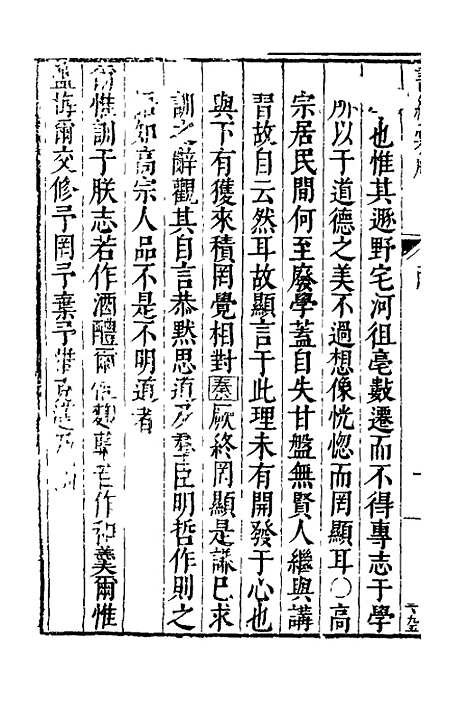 也惟其遜野宅河徂亳數遷而不得專志于學
所以于道德之美不過想像恍惚而罔顯耳○高
宗居民間何至廢學蓋自失甘盤無賢人繼與講
習故自云然耳故顯言于此理未有開發于心也
與下有獲來積罔覺相對秦厥終罔顯是謙巳求
訓之辭觀其自言恭默思道及羣臣明哲作則之
知高宗人品不是不明道者
爾惟訓于朕志若作酒醴爾惟麴糵若作和羹爾惟
鹽梅爾交修予罔予棄予惟克邁乃訓